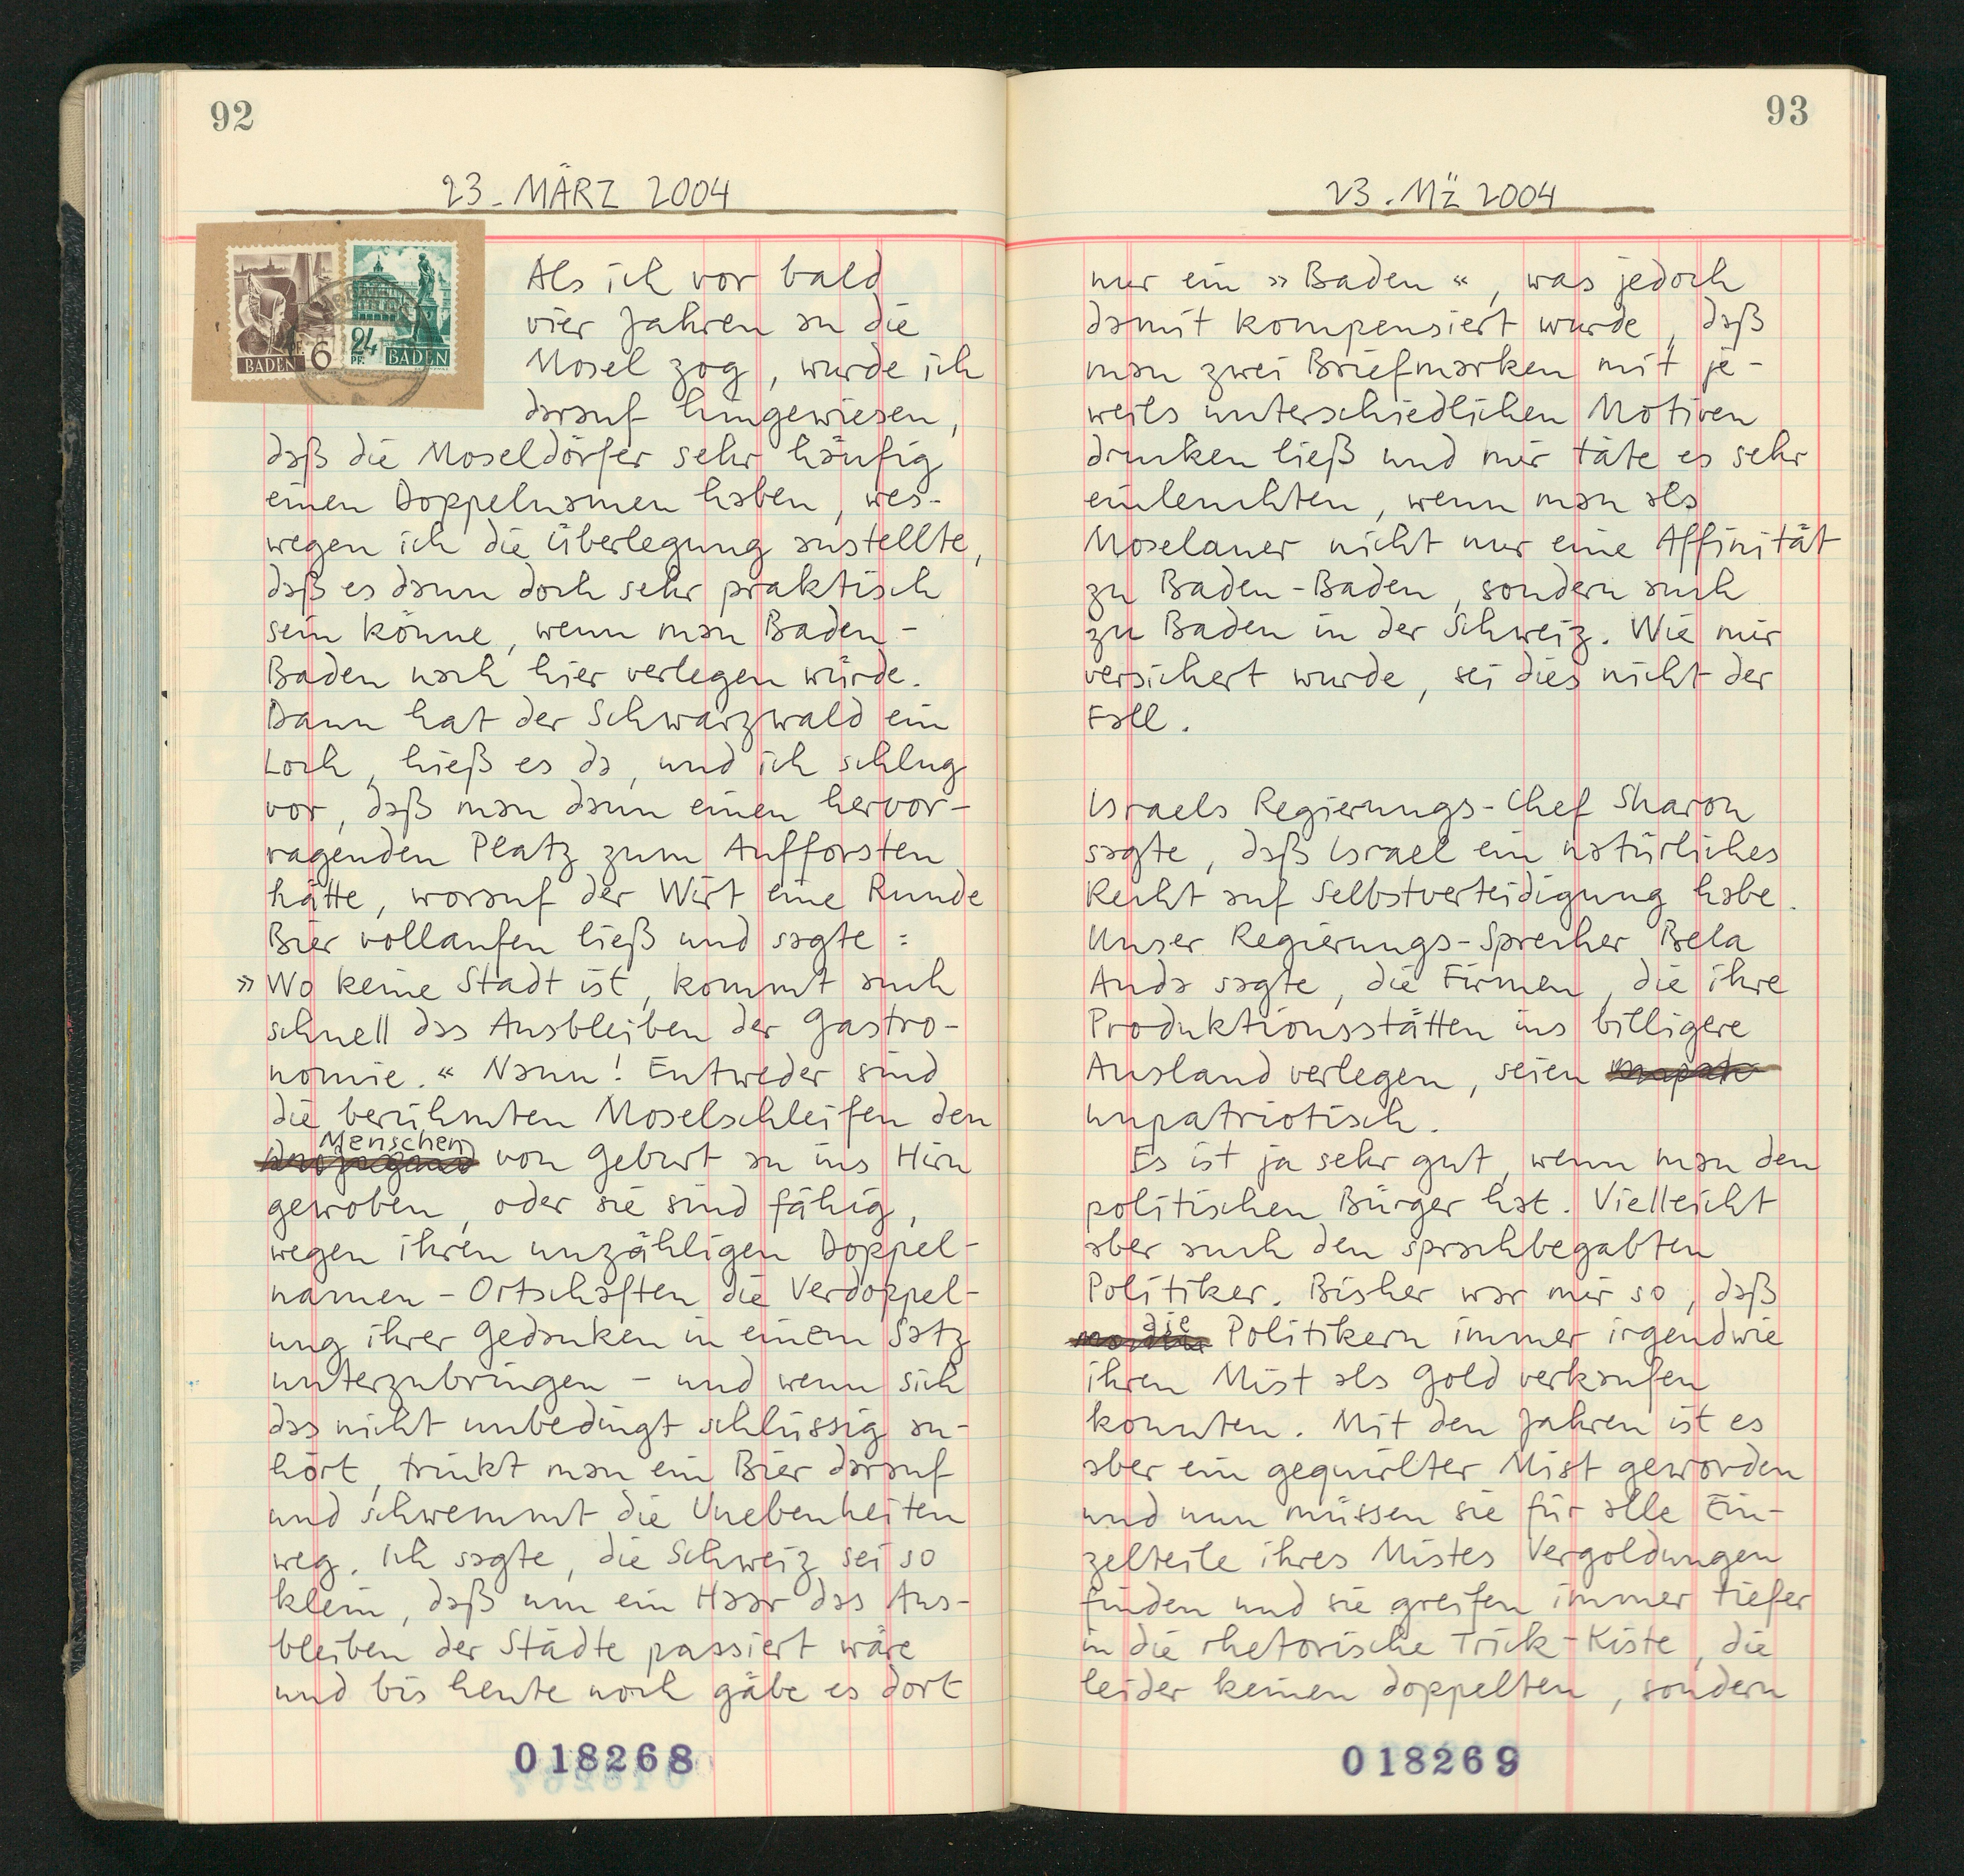 92
23. MÄRZ 2004
6
BADEN
24
PF.
BADEN
Als ich vor bald
vier Jahren an die
Mosel zog, wurde ich
darauf hingewiesen,
daß die Moseldörfer sehr häufig
einen Doppelnamen haben, wes-
wegen ich die Überlegung anstellte,
daß es dann doch sehr praktisch
sein könne, wenn man Baden-
Baden nach hier verlegen würde.
Dann hat der Schwarzwald ein
Loch, hieß es da, und ich schlug
vor, daß man dann einen hervor-
ragenden Platz zum Aufforsten
hätte, worauf der Wirt eine Runde
Bier vollaufen ließ und sagte:
»Wo keine Stadt ist, kommt auch
schnell das Ausbleiben der Gastro-
nomie.« Nann! Entweder sind
die berühmten Moselschleifen den
Menschen
von Geburt an ins Hirn
gewoben, oder sie sind fähig,
wegen ihren unzähligen Doppel-
namen-Ortschaften die Verdoppel-
ung ihrer Gedanken in einem Satz
unterzubringen - und wenn sich
das nicht unbedingt schlüssig an-
hört, trinkt man ein Bier darauf
und schwemmt die Unebenheiten
weg. Ich sagte, die Schweiz sei so
klein, daß um ein Haar das Aus-
bleiben der Städte passiert wäre
und bis heute noch gäbe es dort
018268
93
23. MZ̈ 2004
nur ein »Baden«, was jedoch
damit kompensiert wurde, daß
man zwei Briefmarken mit je-
weils unterschiedlichen Motiven
drucken ließ und mir täte es sehr
einleuchten, wenn man als
Moselaner nicht nur eine Affinität
zu Baden-Baden, sondern auch
zu Baden in der Schweiz. Wie mir
versichert wurde, sei dies nicht der
Fall.
Israels Regierungs-Chef Sharon
sagte, daß Israel ein natürliches
Recht auf Selbstverteidigung habe.
Unser Regierungs-Sprecher Bela
Anda sagte, die Firmen, die ihre
Produktionsstätten ins billigere
Ausland verlegen, seien
unpatriotisch.
Es ist ja sehr gut, wenn man den
politischen Bürger hat. Vielleicht
aber auch den sprachbegabten
Politiker. Bisher war mir so, daß
die
Politikern immer irgendwie
ihren Mist als Gold verkaufen
konnten. Mit den Jahren ist es
aber ein gequirlter Mist geworden
und nun müssen sie für alle Ein-
zelteile ihres Mistes Vergoldungen
finden und sie greifen immer tiefer
in die rhetorische Trick-Kiste, die
leider keinen doppelten, sondern
018269